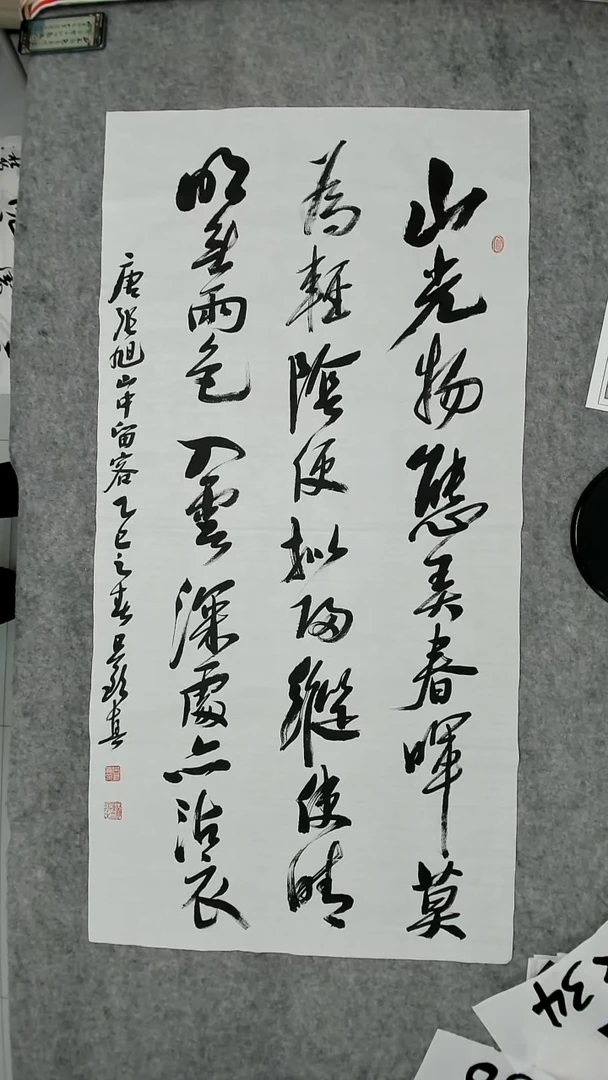 山光物態弄春暉莫
為輕陰便拟歸縱使晴
明無雨色入雲深處亦沾衣
唐張旭山中留客乙巳之春
34